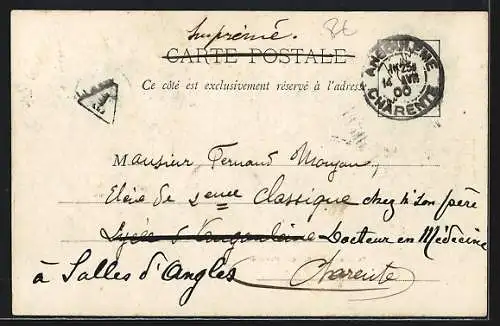 Imprimé.
CARTE POSTALE
Ce côté est exclusivement réservé à l'adresse
ANGOULEME
14 AVR
00
CHARENTE
T
Monsieur Fernand
Elève de 2eme Classique chez M. son père
Lycée d'Angoulême Docteur en Médecine
à Salles d'Angles Charente